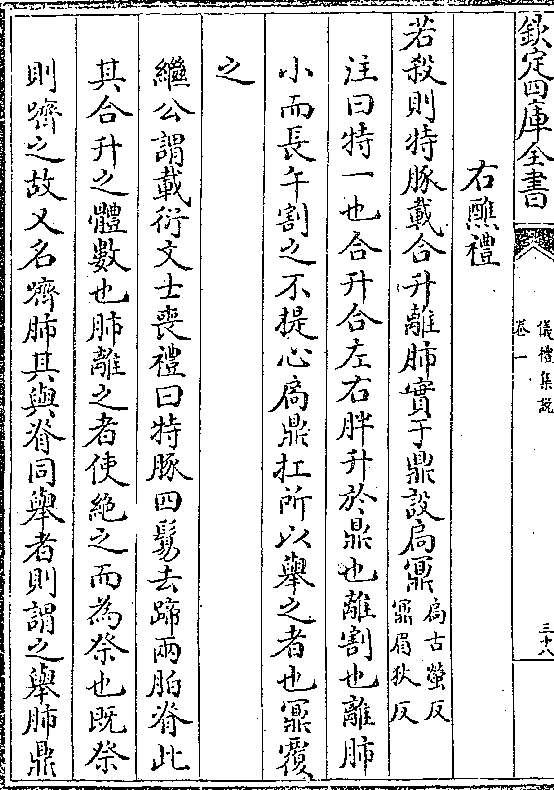 欽定四庫全書
儀禮集說
卷一
三十八
右醮禮
若殺則特豚載合升離肺實于鼎設扃鼏扃古螢反鼏眉狄反
注曰特一也合升合左右胖升於鼎也離割也離肺
小而長午割之不提心扃鼎扛所以舉之者也鼏覆
之
繼公謂載衍文士喪禮曰特豚四鬄去蹄兩胉脊此
其合升之體數也肺離之者使絶之而為祭也既祭
則嚌之故又名嚌肺其與脊同舉者則謂之舉肺鼎